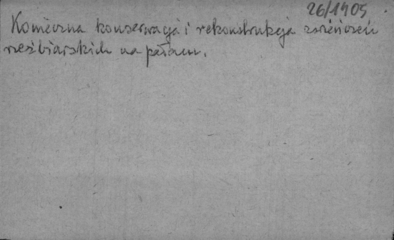 26/1905
Konieczna konserwacja i rekonstrukcja zwieńczeń
rzeźbiarskich na pałacu.